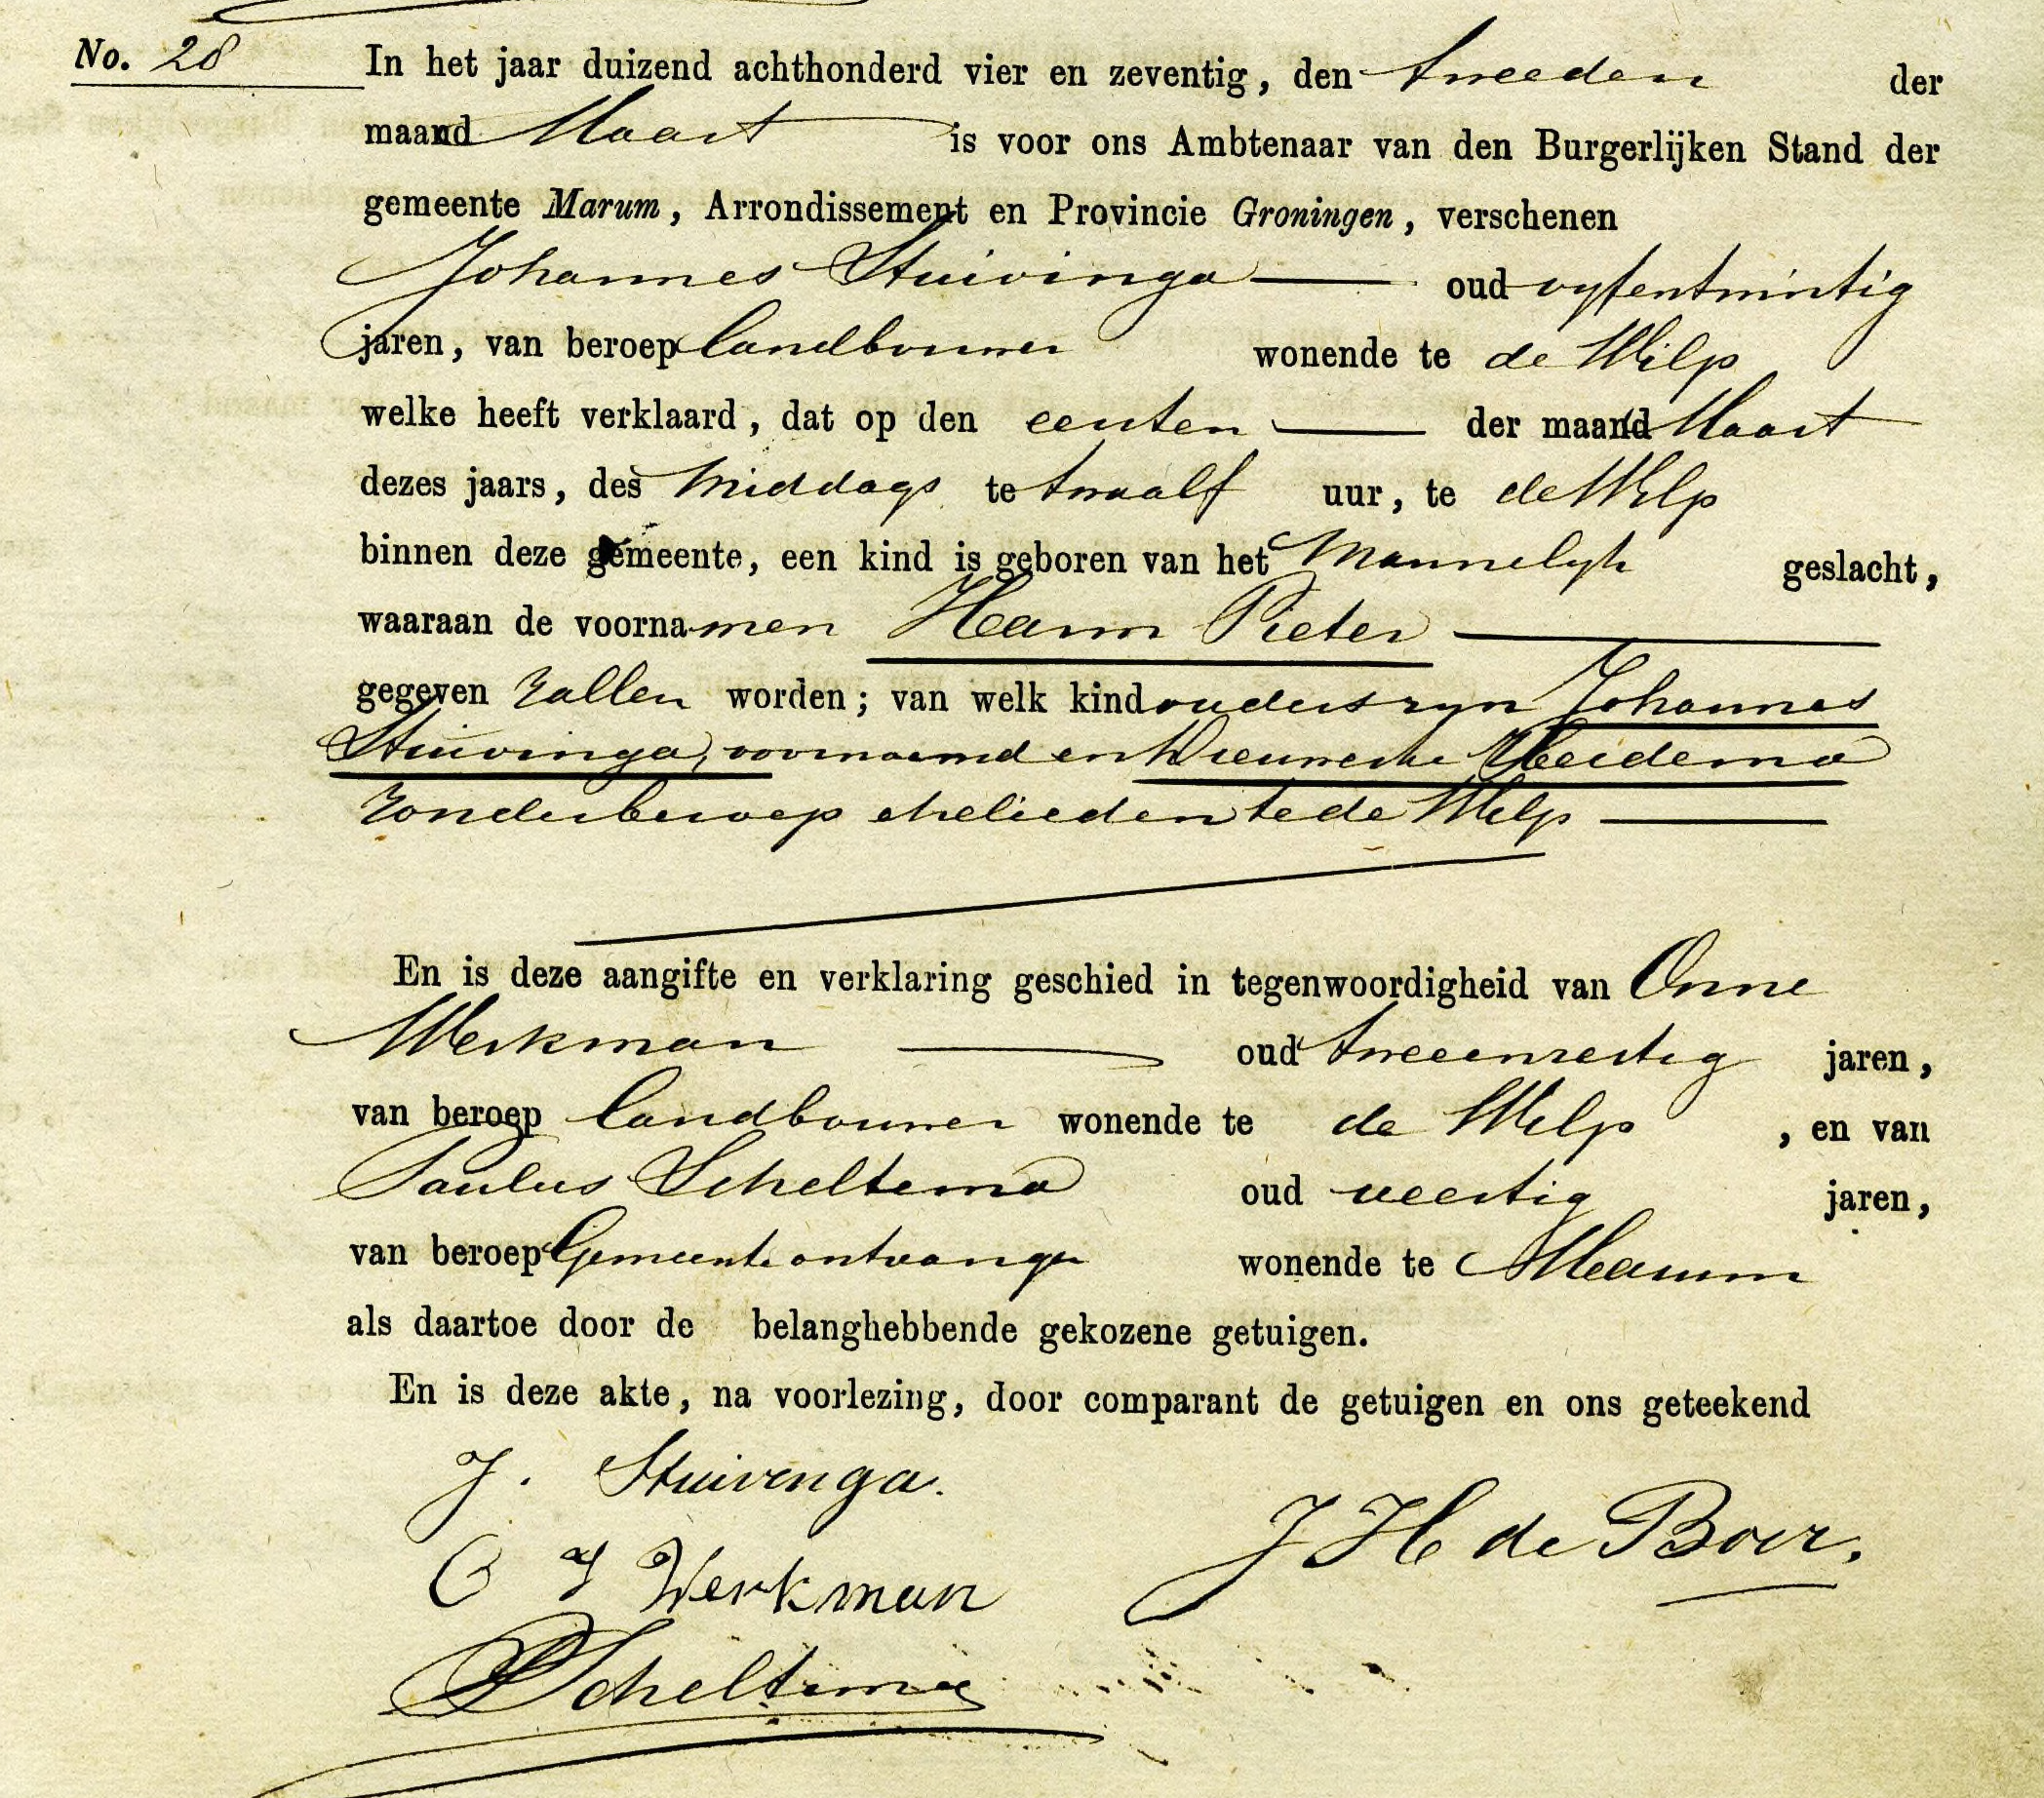 No. 28
In het jaar duizend achthonderd vier en zeventig, den tweeden der
maand Maart is voor ons Ambtenaar van den Burgerlijken Stand der
gemeente Marum, Arrondissement en Provincie Groningen, verschenen
Johannes Stuivinga oud vyfentwintig
jaren, van beroep landbouwer wonende te de Wilp
welke heeft verklaard, dat op den eersten der maand Maart
dezes jaars, des middags te twaalf uur, te de Wilp
binnen deze gemeente, een kind is geboren van het mannelyk geslacht,
waaraan de voornamen Harm Pieter
gegeven zullen worden; van welk kind ouders zyn Johannes
Stuivinga, voornoemd en Heidema
zonder beroep echelieden te de Wilp
En is deze aangifte en verklaring geschied in tegenwoordigheid van Onne
Werkman oud tweeenzestig jaren,
van beroep landbouwer wonende te de Wilp, en van
Paulus Scheltema oud veertig jaren,
van beroep Gemeente ontvanger wonende te Marum
als daartoe door de belanghebbende gekozene getuigen.
En is deze akte, na voorlezing, door comparant de getuigen en ons geteekend
J. Stuivenga.
O J Werkman
J H de Boer.
P Scheltema